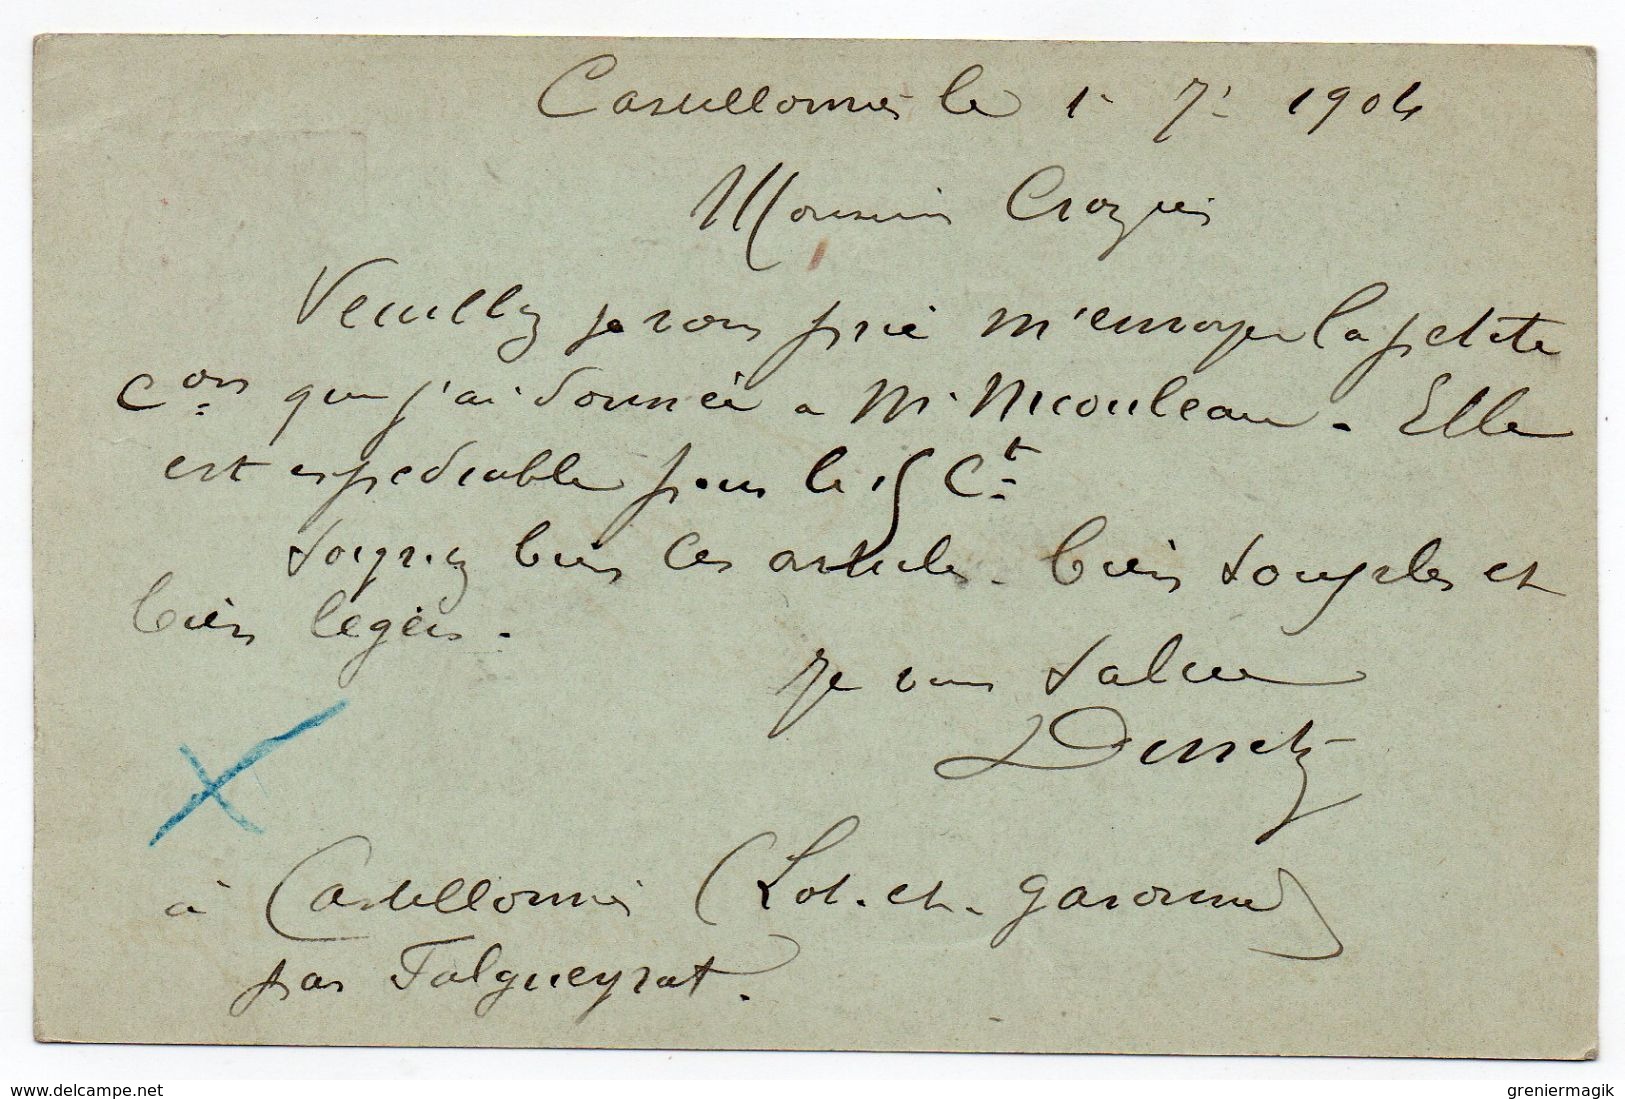 Castillonnès le 1er 7e 1904
Monsieur Crozes
Veuillez je vous prie m'envoyer la petite
Cons que j'ai donnée a Mr Nicouleau. Elle
est expediable pour le 15 Ct
Soignez bien ces articles. bien souples et
bien legers.
Je vous salue
à Castillonnès (Lot-et-Garonne)
par Falgueyrat.
www.delcampe.net
greniermagik